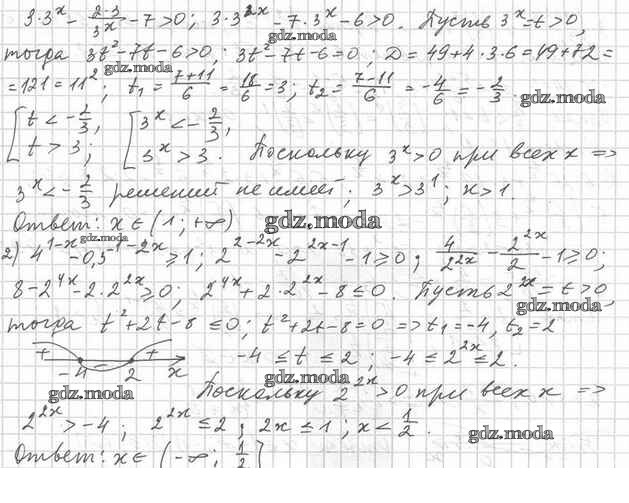 3·3^x − (2·3)/3^x − 7 > 0; 3·3^2x − 7·3^x − 6 > 0. Пусть 3^x = t > 0,
gdz.moda
тогда 3t² − 7t − 6 > 0; 3t² − 7t − 6 = 0; D = 49 + 4·3·6 = 49 + 72 =
gdz.moda
= 121 = 11²; t₁ = (7+11)/6 = 18/6 = 3; t₂ = (7−11)/6 = −4/6 = −2/3.
gdz.moda
[ t < −2/3, [ 3^x < −2/3,
t > 3; 3^x > 3. Поскольку 3^x > 0 при всех x =>
3^x < −2/3 решений не имеет; 3^x > 3^1; x > 1.
Ответ: x ∈ (1; +∞)
gdz.moda
gdz.moda
2) 4^(1−x) − 0,5^(1−2x) ≥ 1; 2^(2−2x) − 2^(2x−1) − 1 ≥ 0; 4/2^2x − 2^2x/2 − 1 ≥ 0;
8 − 2^4x − 2·2^2x ≥ 0; 2^4x + 2·2^2x − 8 ≤ 0. Пусть 2^2x = t > 0,
gdz.moda
тогда t² + 2t − 8 ≤ 0; t² + 2t − 8 = 0 => t₁ = −4, t₂ = 2
+ − +
−4 2 x
−4 ≤ t ≤ 2; −4 ≤ 2^2x ≤ 2.
gdz.moda
gdz.moda
Поскольку 2^2x > 0 при всех x =>
2^2x > −4; 2^2x ≤ 2; 2x ≤ 1; x < 1/2.
gdz.moda
Ответ: x ∈ (−∞; 1/2]